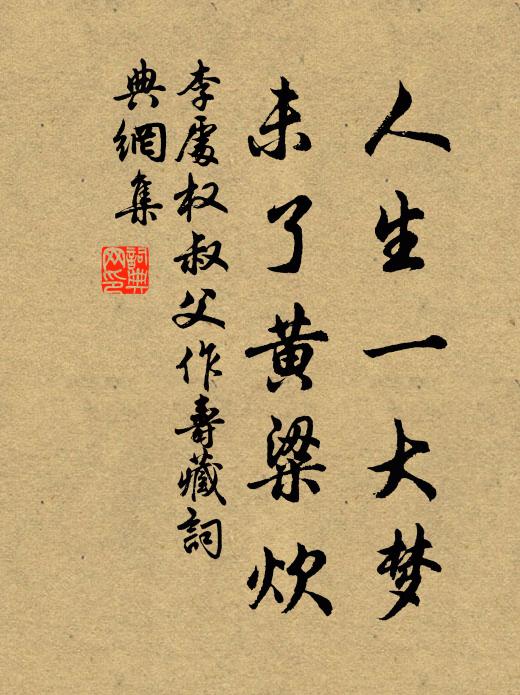 人生一大梦
未了黄粱炊
李處权叔父作壽藏詞
典網集
詞典网印